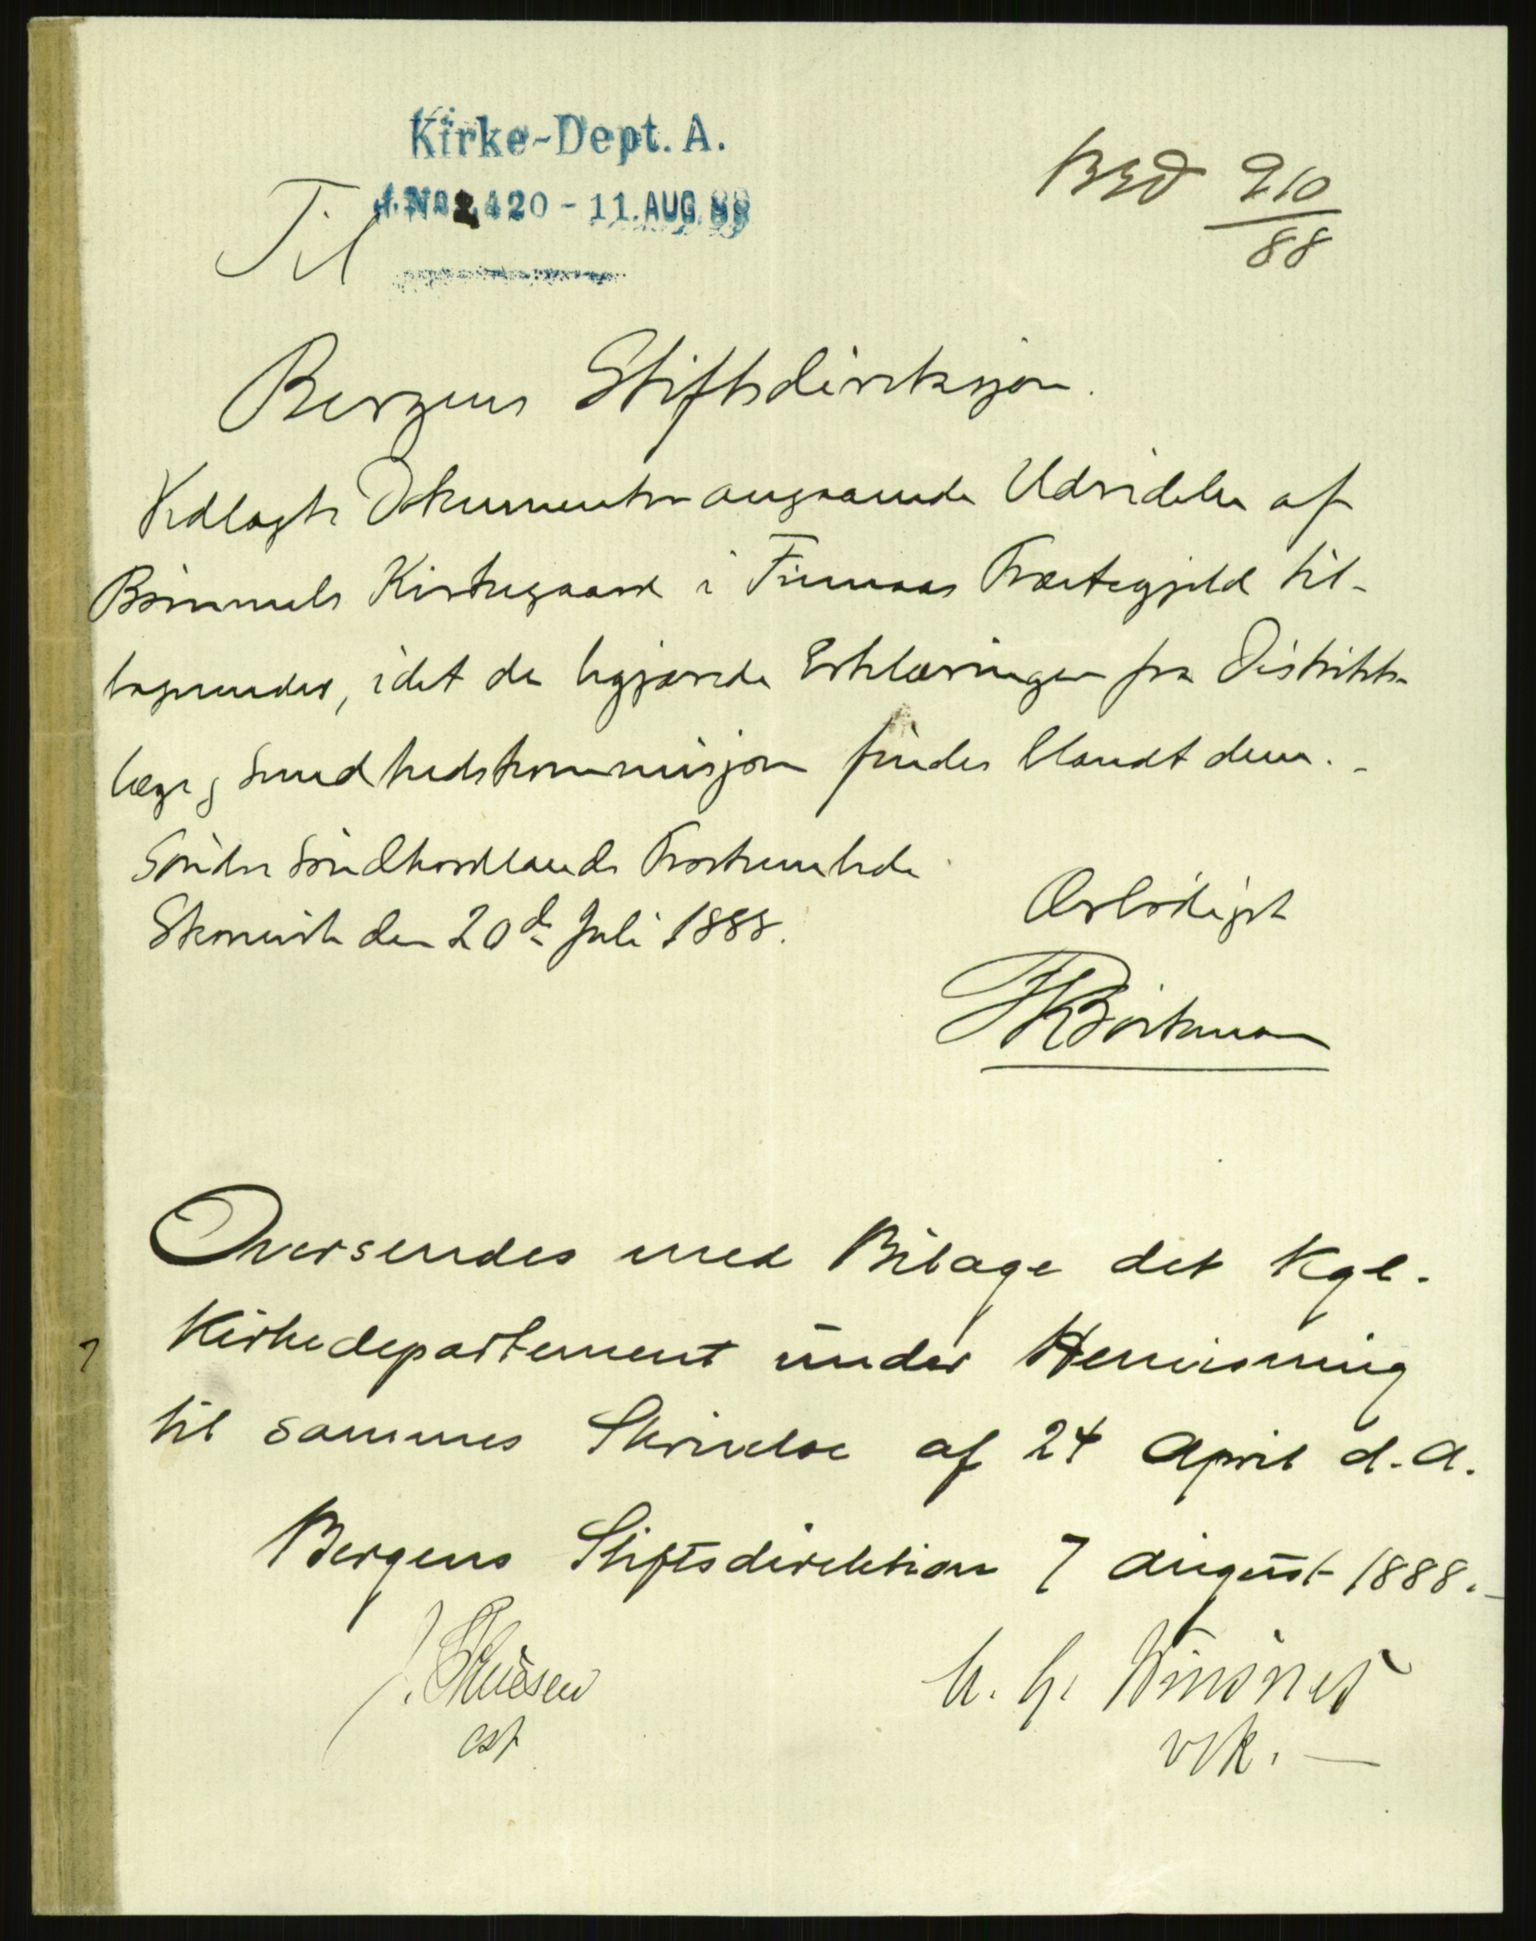 Kirke-Dept. A.
J.No 2420 - 11.AUG.88
910
88
Til
Bergens Stiftsdireksjon.
Vedlagte Dokumenter angaaende Udvidelse af
Bømmels Kirkegaard i Finnaas Præstegjeld til-
bagesendes, idet de begjærede Erklæringer fra Distrikts-
læge og Sundhedskommisjon findes blandt dem. -
Søndre Søndhordlands Prostembede
Skonevik den 20de Juli 1888.
Ærbødigst
Oversendes med Bilage det Kgl.
Kirkedepartement under Henvisning
til sammes Skrivelse af 24 April d.A.
Bergens Stiftsdirektion 7 august 1888. -
cst